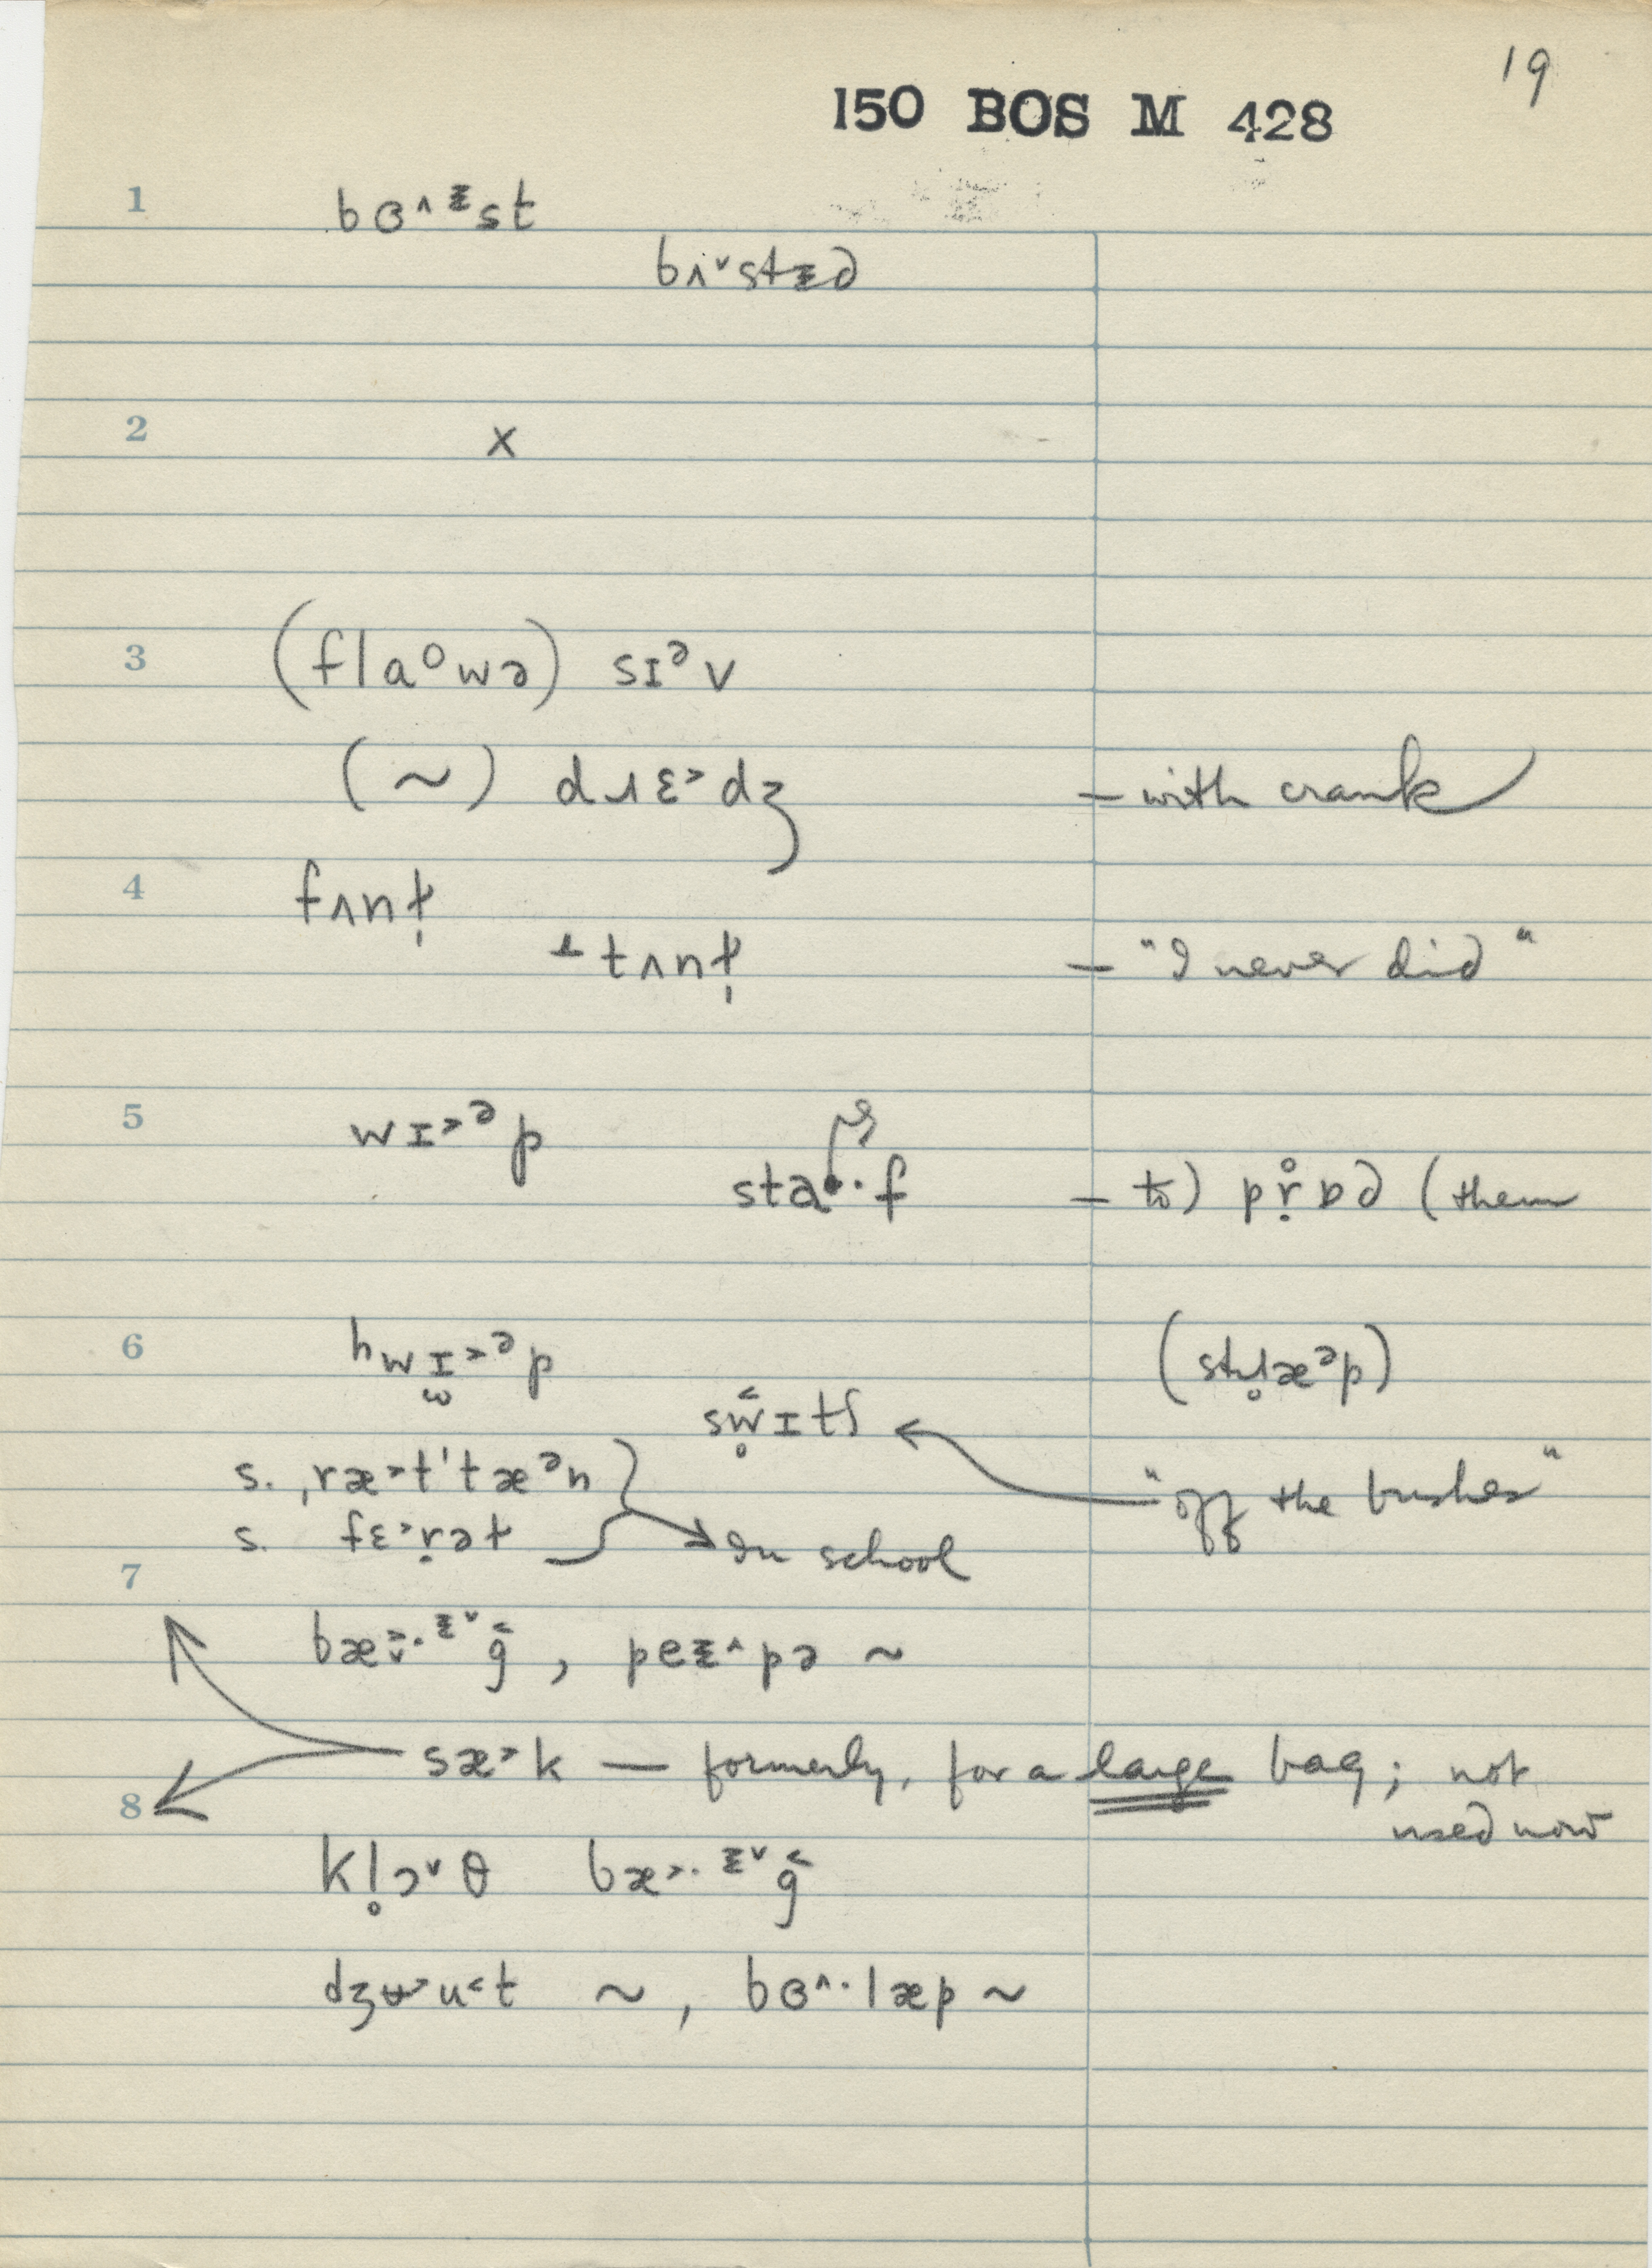 19
150 BOS M 428
1 bɞ˄ᵻst
bʌ˅stᵻd
2 x
3 (flaᵒwə) sɪᵊv
(~) dɹɛ˃dʒ – with crank
4 fʌnɫ̩
⊥ tʌnɫ̩ – "I never did"
5 wɪ˃ᵊp sta·f – to) pr̥̣ɒd (them
6 hwɪ˃ᵊp (stɹ̥æᵊp)
sw̥˂ɪtʃ
s. ˌræ˃t'tæᵊn "off the bushes"
s. fɛ˃ṛət In school
7
bæ˅˃·ᵻ˅g˂, peᵻ˄pə ~
sæ˃k — formerly, for a large bag; not
used now
8
kl̥ɔ˅θ bæ˃·ᵻ˅g˂
dʒʉ˃u˂t ~, bɞ˄·læp ~